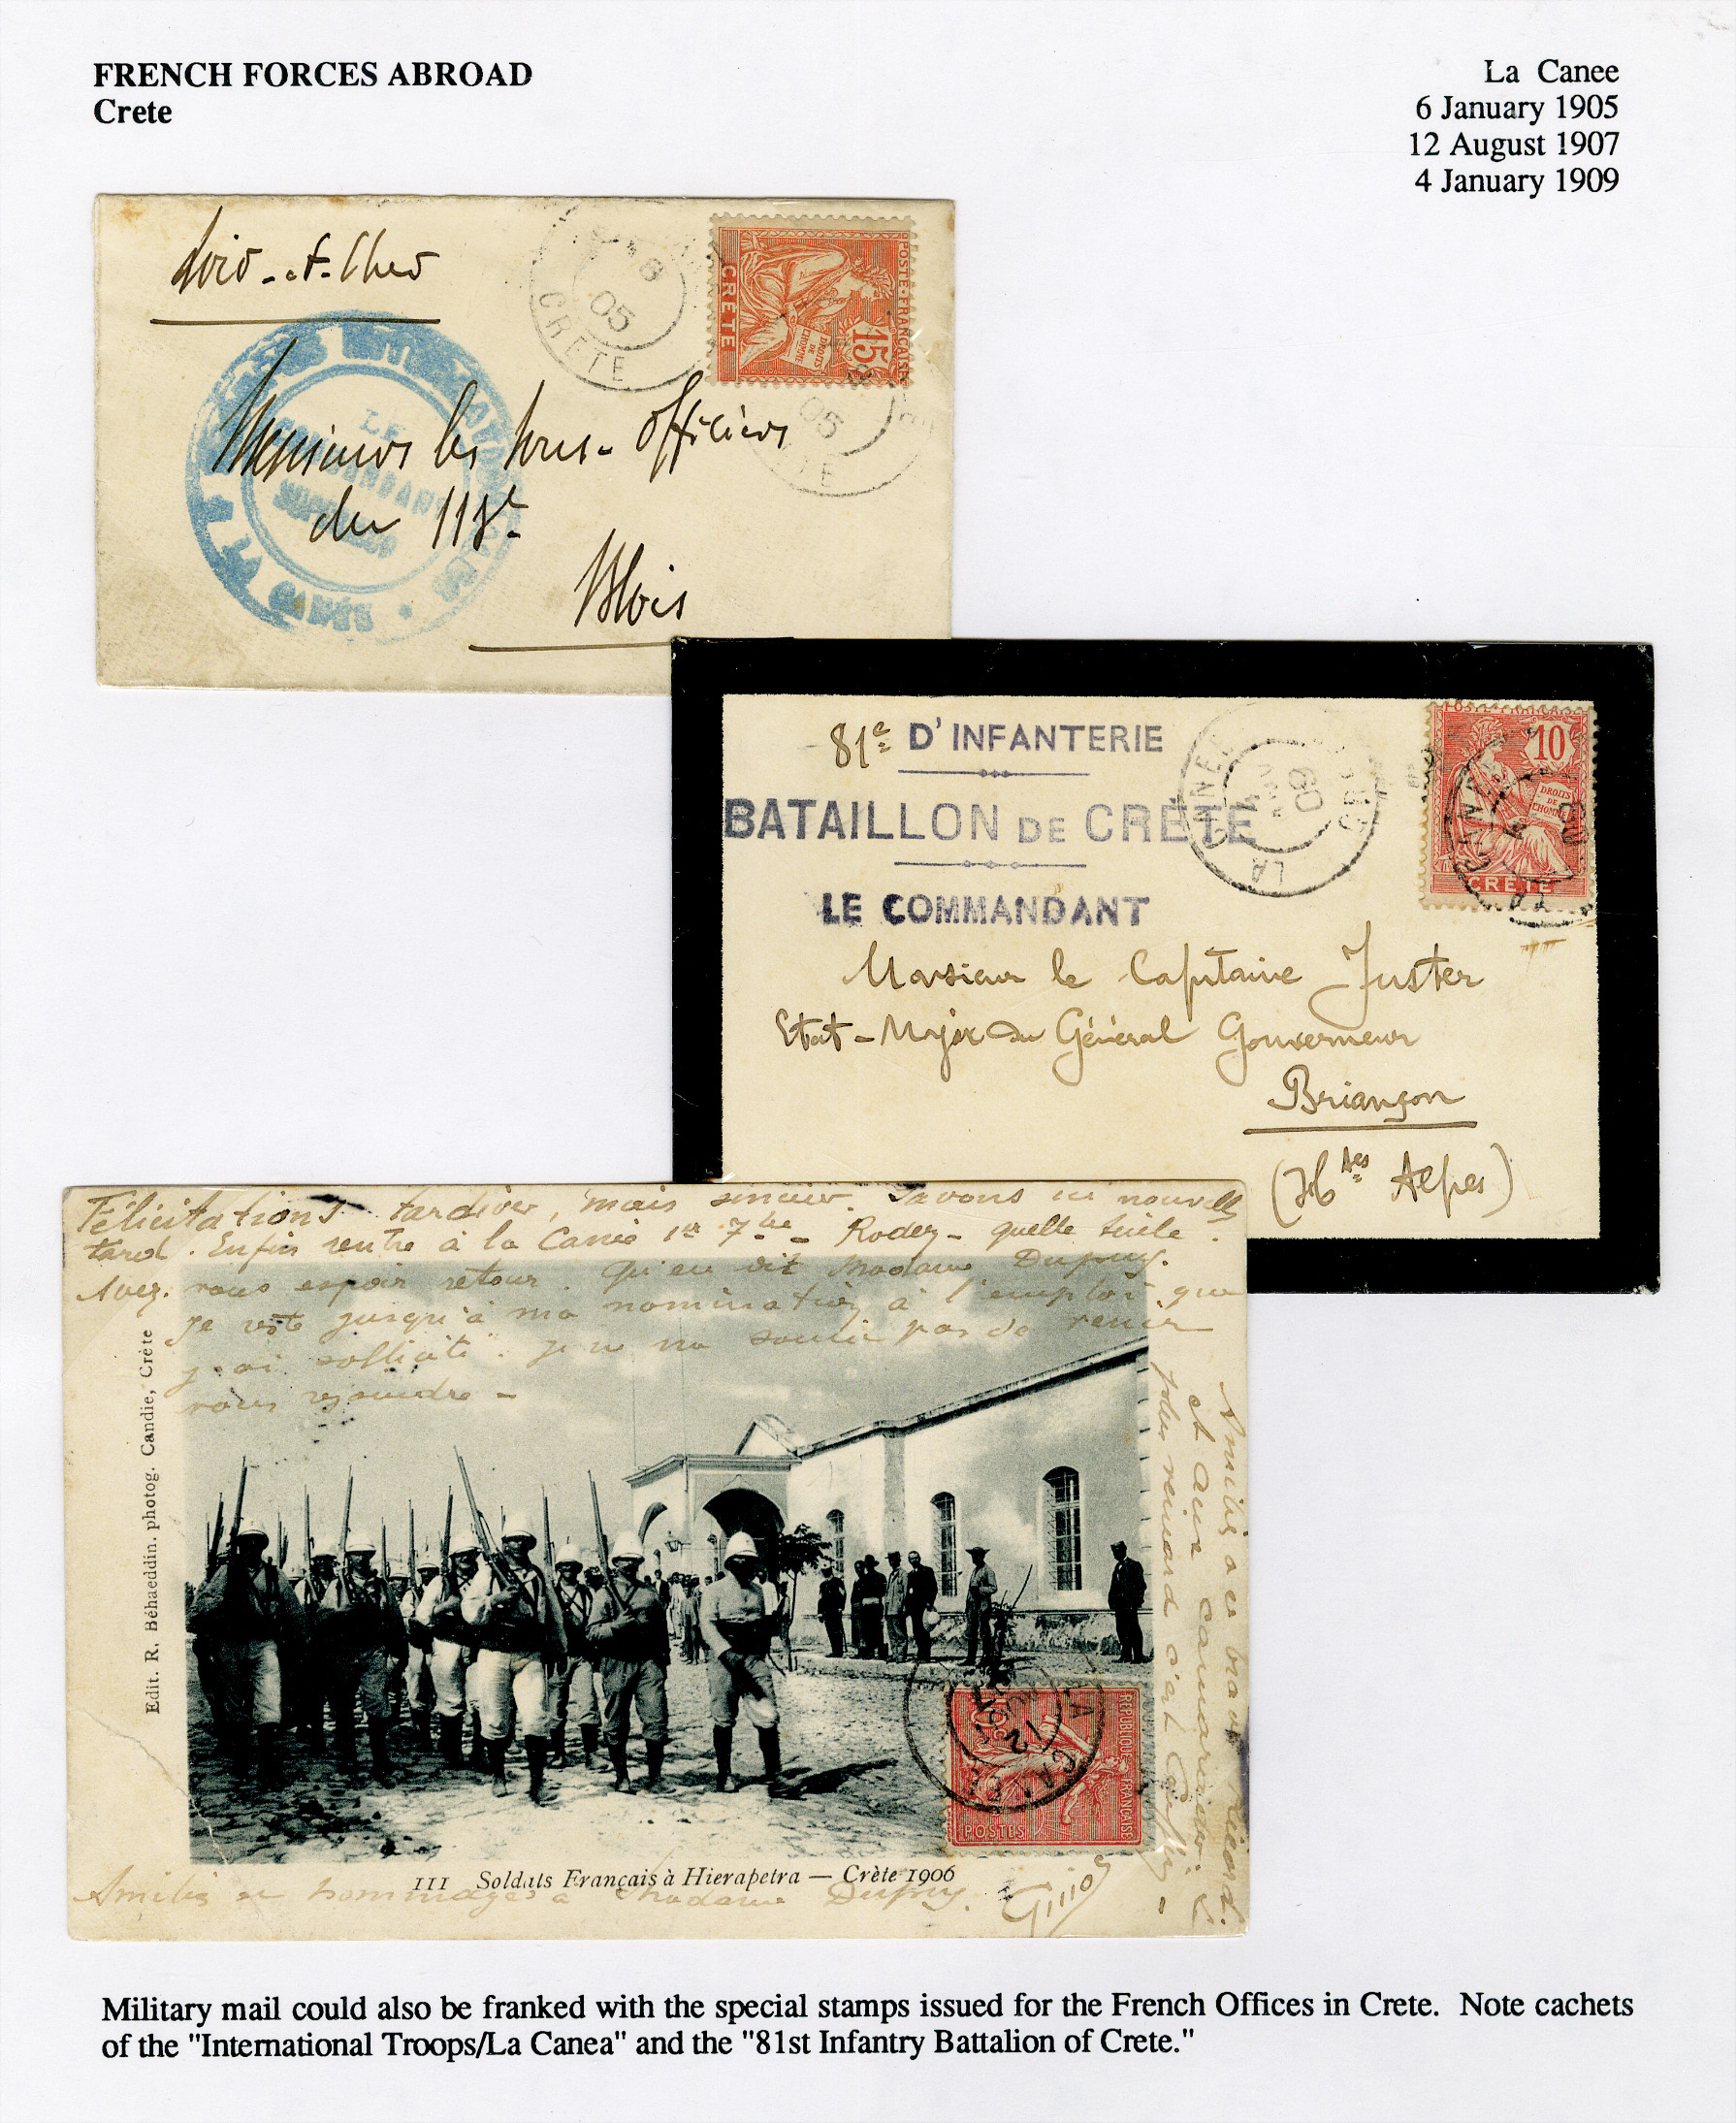 FRENCH FORCES ABROAD
Crete
La Canee
6 January 1905
12 August 1907
4 January 1909
Loir-et-Cher
05
CRETE
POSTE FRANÇAISE
15
DROITS
DE
L'HOMME
CRÈTE
LE
COMMANDANT
LA CANÉE
Messieurs les sous-officiers
du 113e
Blois
05
81e D'INFANTERIE
BATAILLON DE CRÈTE
LE COMMANDANT
LA CANEE
09
10
DROITS
DE
L'HOMME
CRÈTE
Monsieur le Capitaine Juster
Etat-Major du Général Gouverneur
Briançon
(Htes Alpes)
Félicitations tardives, mais sincères. Savons ici nouvelles
tard. Enfin rentre à la Canée 1er 7bre - Rodez - quelle tuile.
Avez vous espoir retour. Qu'en dit Madame Dupuy.
Je reste jusqu'à ma nomination à l'emploi que
j'ai sollicité. Je ne me soucie pas de venir
vous rejoindre -
Edit. R. Béhaeddin. photog. Candie, Crète
et aux camarades
RÉPUBLIQUE FRANÇAISE
POSTES
LA CANEE
12
111 Soldats Français à Hierapetra — Crète 1906
Amitiés et hommages à Madame Dupuy.
Military mail could also be franked with the special stamps issued for the French Offices in Crete. Note cachets
of the "International Troops/La Canea" and the "81st Infantry Battalion of Crete."